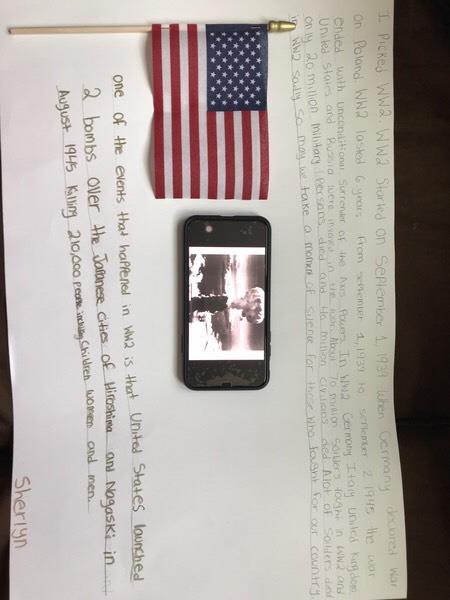 I Picked WW2. WW2 Started on September 1, 1939 when Germany declared war
on Poland. WW2 lasted 6 years from september 1, 1939 to september 2 1945 the war
ended with unconditional surrender of the Axis Powers. In WW2 Germany, Italy, United Kingdom
United States and Russia were involved in the wars. About 70 million Soldiers fought in WW2 and
only 20 million military Persons died and 40 million civilians died. A lot of Soilders died
in WW2 sadly so may we take a moment of silence for those who fought for our country
one of the events that happened in WW2 is that United States launched
2 bombs over the Japanese cities of Hiroshima and Nagaski in
August 1945 Killing 210,000 people including children women and men.
Sherlyn